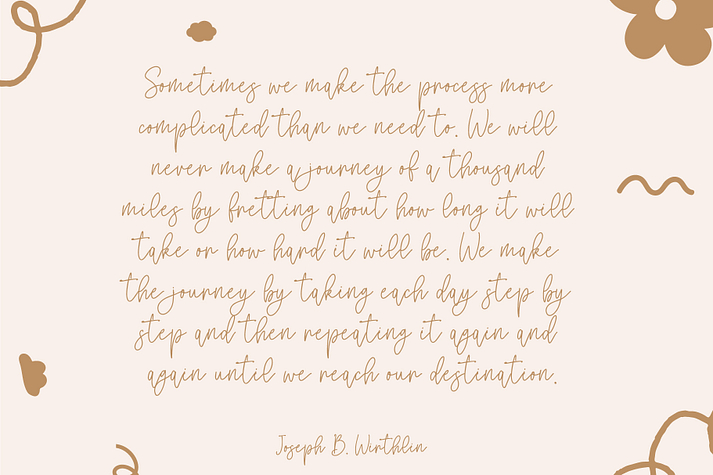 Sometimes we make the process more
complicated than we need to. We will
never make a journey of a thousand
miles by fretting about how long it will
take or how hard it will be. We make
the journey by taking each day step by
step and then repeating it again and
again until we reach our destination.
Joseph B. Wirthlin